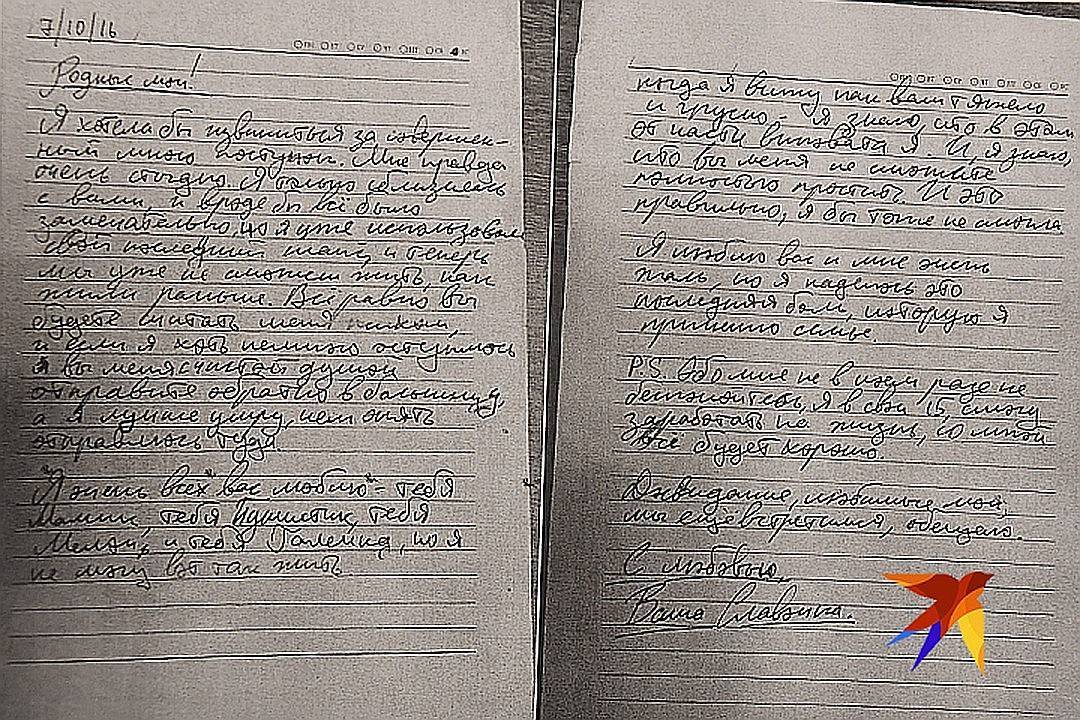 7/10/16
ПН ВТ СР ЧТ ПТ СБ ВС
Родные мои!
Я хотела бы извиниться за совершен-
ный мною поступок. Мне правда
очень стыдно. Я только сблизилась
с вами, и вроде бы всё было
замечательно, но я уже использовала
свой последний шанс, и теперь
мы уже не сможем жить, как
жили раньше. Всё равно вы
будете считать меня
и если я хоть немного оступлюсь
вы меня с чистой душой
отправите обратно в больницу,
а я лучше умру, чем опять
отправлюсь туда.
Я очень всех вас люблю - тебя
Мамик, тебя тебя
и тебя Галенка, но я
не могу вот так жить
ПН ВТ СР ЧТ ПТ СБ ВС
когда я вижу как вам тяжело
и грустно - я знаю, что в этом
от части виновата я. И, я знаю,
что вы меня не сможете
полностью простить. И это
правильно, я бы тоже не смогла.
Я люблю вас и мне очень
жаль, но я надеюсь это
последняя боль, которую я
приношу семье.
P.S. Обо мне не в коем разе не
беспокойтесь, я в свои 15 смогу
заработать на жизнь, со мной
всё будет хорошо.
Досвидание, любимые мои,
мы ещё встретимся, обещаю.
С любовью,
Ваша Славяна.